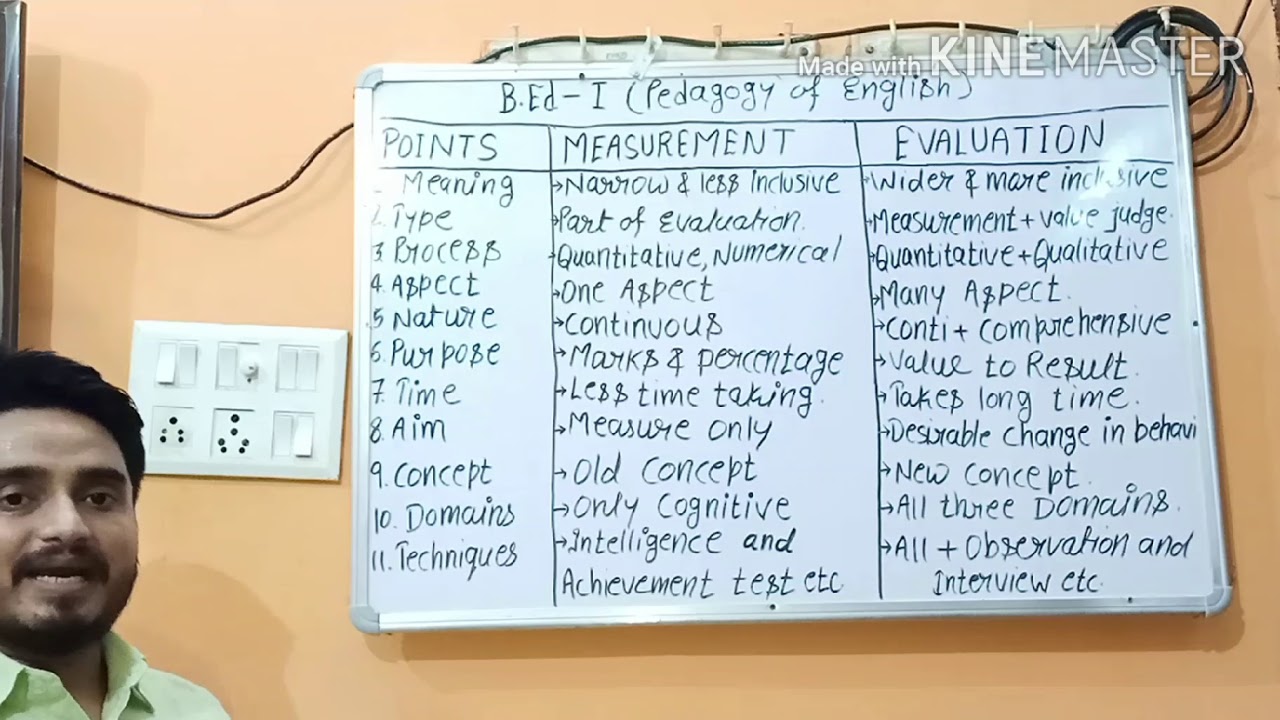 Made with KINEMASTER
B.Ed-I (Pedagogy of English)
POINTS MEASUREMENT EVALUATION
1. Meaning →Narrow & less Inclusive →Wider & more inclusive
2. Type →Part of Evaluation. →Measurement + value judge.
3. Process →Quantitative, Numerical →Quantitative+Qualitative
4. Aspect →One Aspect →Many Aspect.
5 Nature →Continuous →Conti + Comprehensive
6. Purpose →Marks & percentage →Value to Result.
7. Time →Less time taking. →Takes long time.
8. Aim →Measure only →Desirable change in behavi
9. Concept →Old Concept →New Concept.
10. Domains →Only Cognitive →All three Domains.
11. Techniques →Intelligence and →All + Observation and
Achievement test etc. Interview etc.